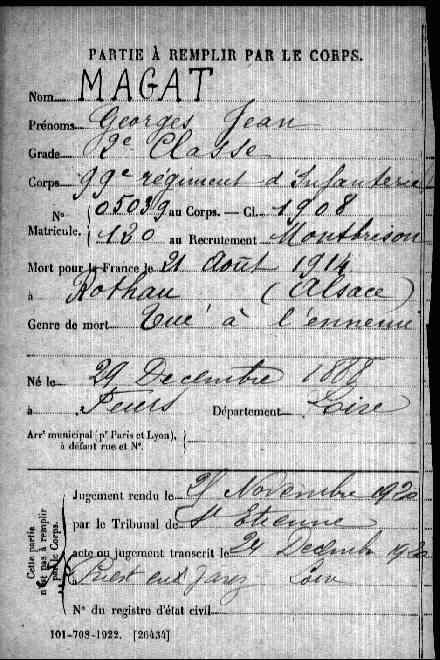 PARTIE À REMPLIR PAR LE CORPS.
Nom MAGAT
Prénoms Georges Jean
Grade 2e Classe
Corps 99e régiment d'Infanterie
N° Matricule. 05039 au Corps. — Cl. 1908
120 au Recrutement Montbrison
Mort pour la France le 21 Août 1914
à Rothau (Alsace)
Genre de mort Tué à l'ennemi
Né le 29 Decembre 1888
à Feurs Département Loire
Arrt municipal (pr Paris et Lyon),
à défaut rue et N°.
Cette partie
n'est pas à remplir
par le Corps.
Jugement rendu le Novembre 1920
par le Tribunal de St Etienne
acte ou jugement transcrit le 24 Decembre 1920
St Priest en Jarez Loire
N° du registre d'état civil
101-708-1922. [26434]